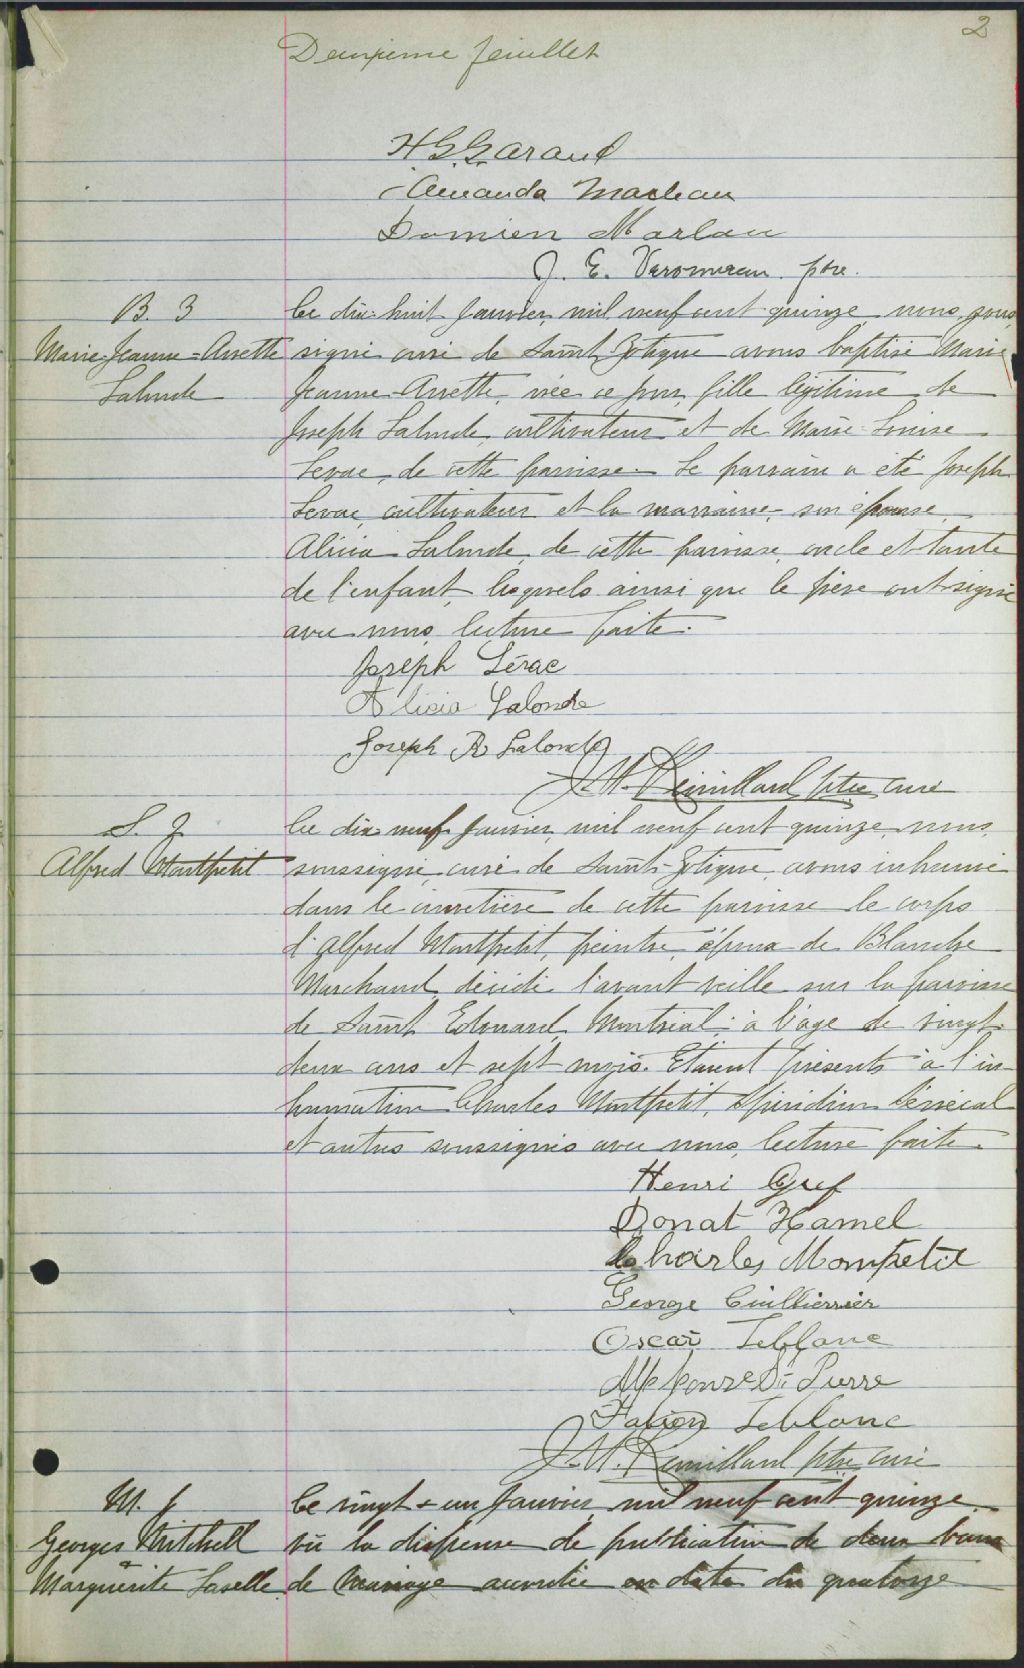 2
Deuxième feuillet
H G Garand
Amanda Marleau
Damien Marlau
J. E. Véronneau. ptre.
B. 3
Le dix-huit janvier, mil neuf cent quinze, nous, sous,
Marie-Jeanne-Annette
signé curé de Saint Zotique avons baptisé Marie
Lalonde
Jeanne-Annette, née ce jour, fille légitime de
Joseph Lalonde, cultivateur et de Marie-Louise
Levac, de cette paroisse. Le parrain a été Joseph
Levac, cultivateur et la marraine, son épouse,
Alicia Lalonde, de cette paroisse, oncle et tante
de l'enfant, lesquels ainsi que le père ont signé
avec nous, lecture faite.
Joseph Lévac
Alicia Lalonde
Joseph R Lalonde
J.-M. Remillard ptre, curé
S.
Le dix neuf janvier, mil neuf cent quinze, nous,
Alfred Montpetit
soussigné, curé de Saint-Zotique, avons inhumé
dans le cimetière de cette paroisse le corps
d'Alfred Montpetit, peintre, époux de Blanche
Marchand, décédé l'avant veille sur la paroisse
de Saint Edouard, Montréal, à l'âge de vingt-
deux ans et sept mois. Etaient présents à l'in-
humation Charles Montpetit, Spiridion Sénécal
et autres soussignés avec nous, lecture faite.
Henri
Donat Hamel
Charles Mompetit
George Cuillierrier
Oscar Leblanc
Alphonse St Pierre
Fabien Leblanc
J.-M. Remillard ptre, curé
M.
Le vingt & un janvier, mil neuf cent quinze,
Georges Mitchell
vû la dispense de publication de deux bans
&
Marguerite Laselle
de mariage accordée en date du quatorze